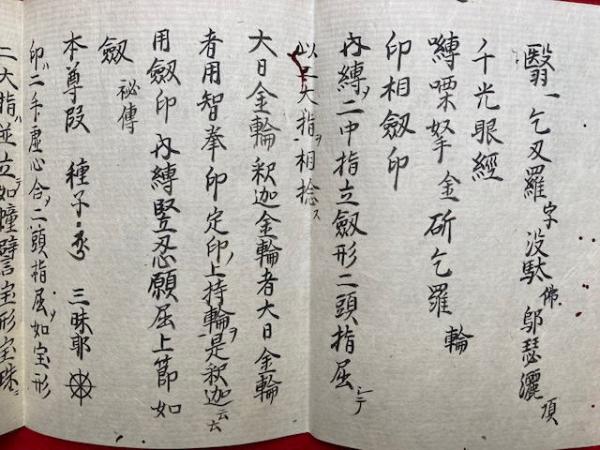 翳一乞叉羅字没駄佛鄔瑟灑頂
千光眼經
嚩㗚拏金斫乞羅輪
印相劔印
内縛ヲ二中指立劔形二頭指屈シテ
以二大指ヲ相捻ス
大日金輪釈迦金輪者大日金輪
者用智拳印定印ノ上持輪ヲ是釈迦云云
用劔印内縛竪忍願屈上節如
劔祕傳
本尊段種子三昧耶
印ハ二手虚心合ソ二頭指屈ソ如宝形
二大指並立如幢譬宝形宝珠ニ